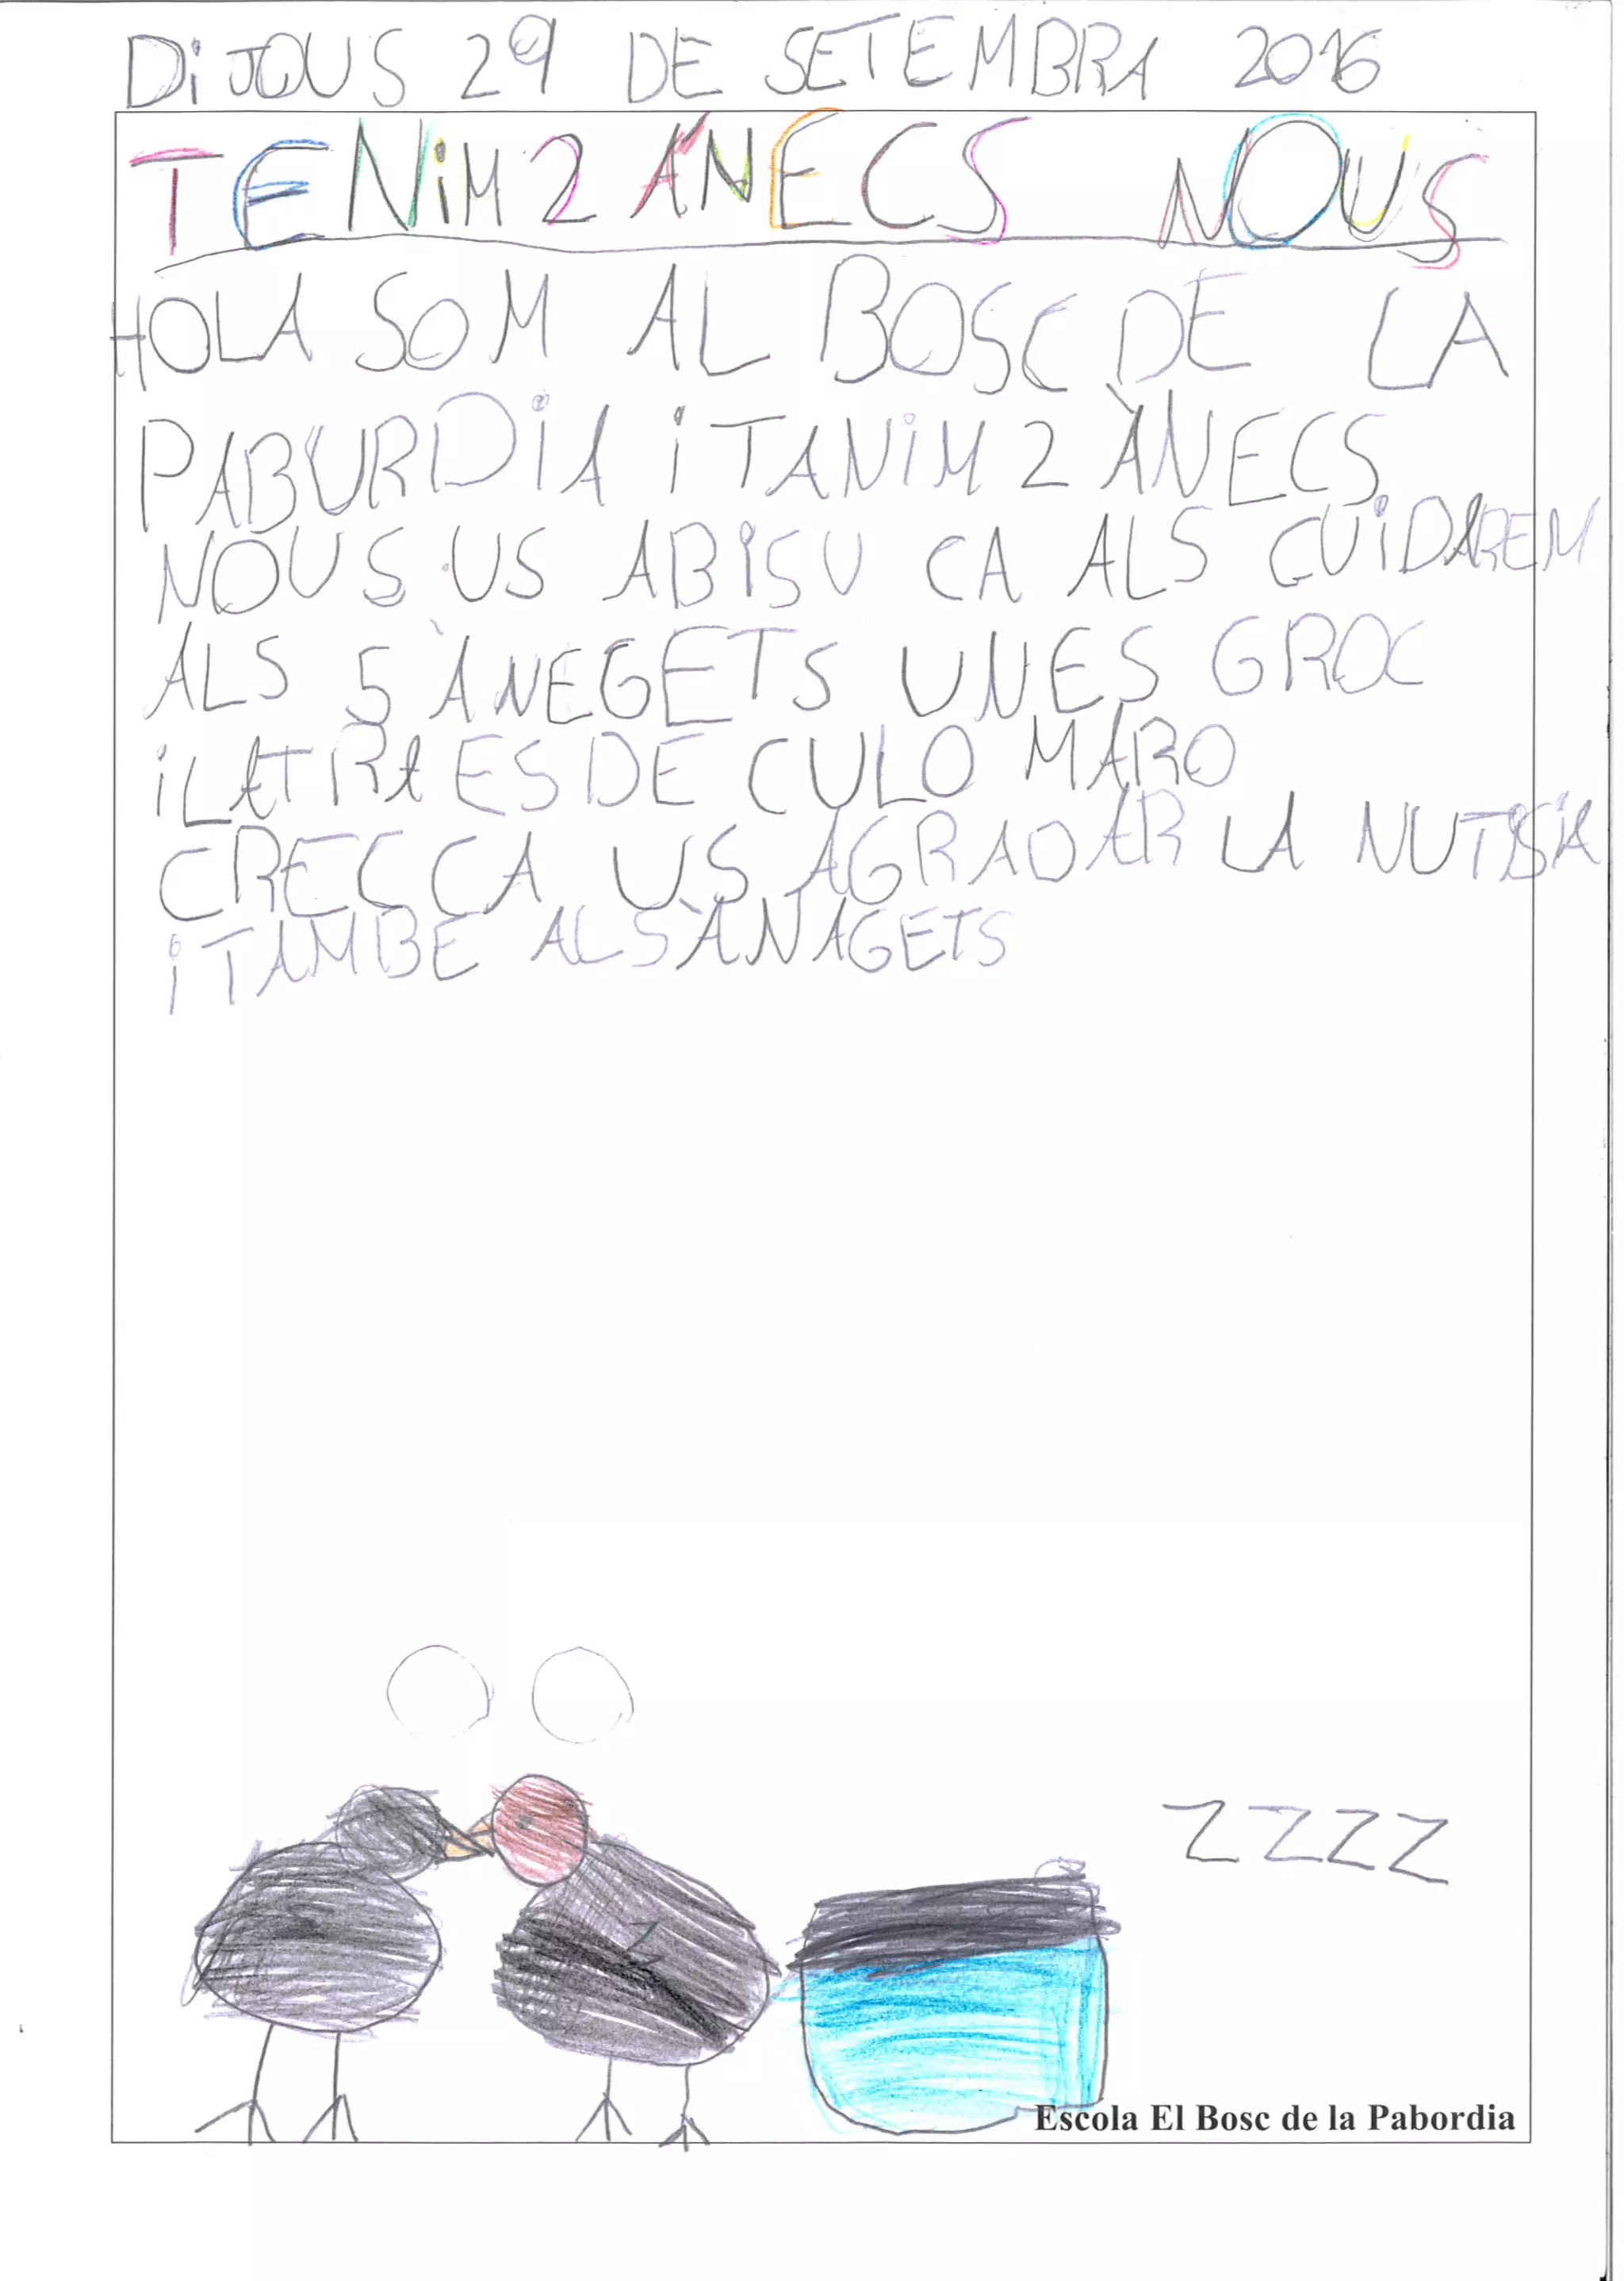 DiJOUS 29 DE SETEMBRA 2016
TENiM 2 ÀNECS NOUS
HOLA SOM AL BOSC DE LA
PABURDiA i TANiM 2 ÀNECS
NOUS US ABiSU CA ALS CUiDAREM
ALS 5 ÀNEGETS UNES GROC
iLATRA ES DE CULO MARO
CREC CA US AGRADAR LA NUTISIA
i TAMBE ALS ÀNAGETS
ZZZZ
Escola El Bosc de la Pabordia